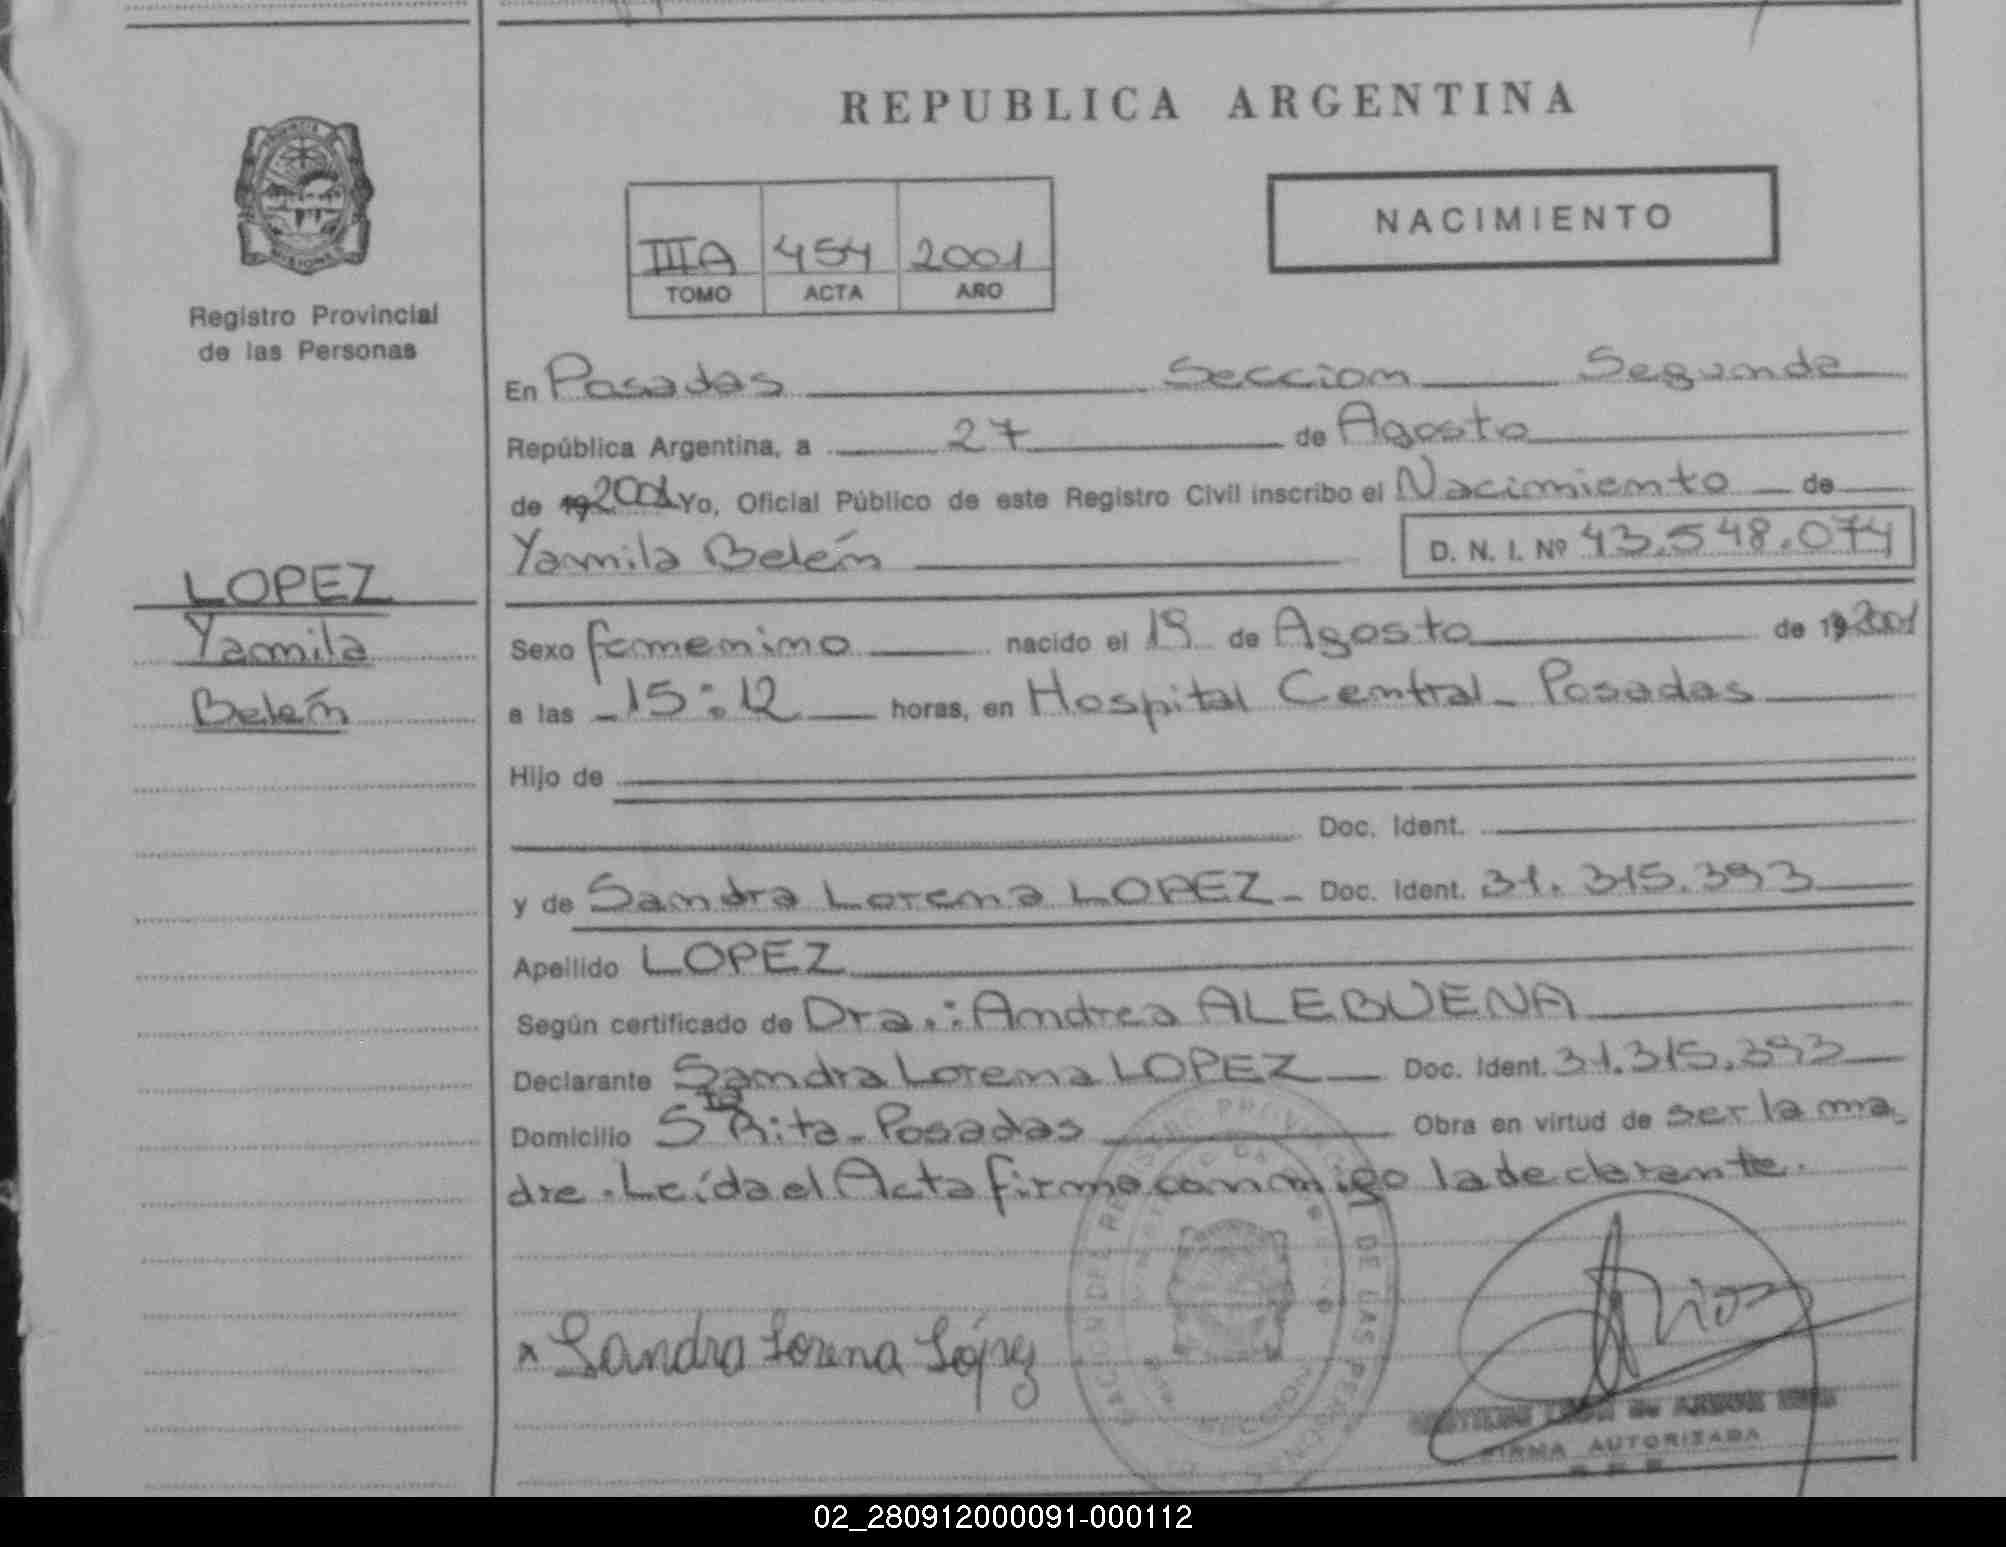 REPUBLICA ARGENTINA
NACIMIENTO
IIIA 454 2001
TOMO ACTA AÑO
Registro Provincial
de las Personas
En Posadas Seccion Segunda
República Argentina, a 27 de Agosto
de 19 2001 Yo, Oficial Público de este Registro Civil inscribo el Nacimiento de
Yamila Belén D. N. I. Nº 43.548.074
LOPEZ
Yamila
Belén
Sexo femenino nacido el 19 de Agosto de 19 2001
a las 15:12 horas, en Hospital Central - Posadas
Hijo de
Doc. Ident.
y de Sandra Lorena LOPEZ - Doc. Ident. 31.315.393
Apellido LOPEZ
Según certificado de Dra.: Andrea ALEBUENA
Declarante Sandra Lorena LOPEZ Doc. Ident. 31.315.393
Domicilio Sta Rita - Posadas Obra en virtud de ser la ma-
dre. Leída el Acta firma conmigo la declarante.
x Sandra Lorena López
FIRMA AUTORIZADA
02_280912000091-000112